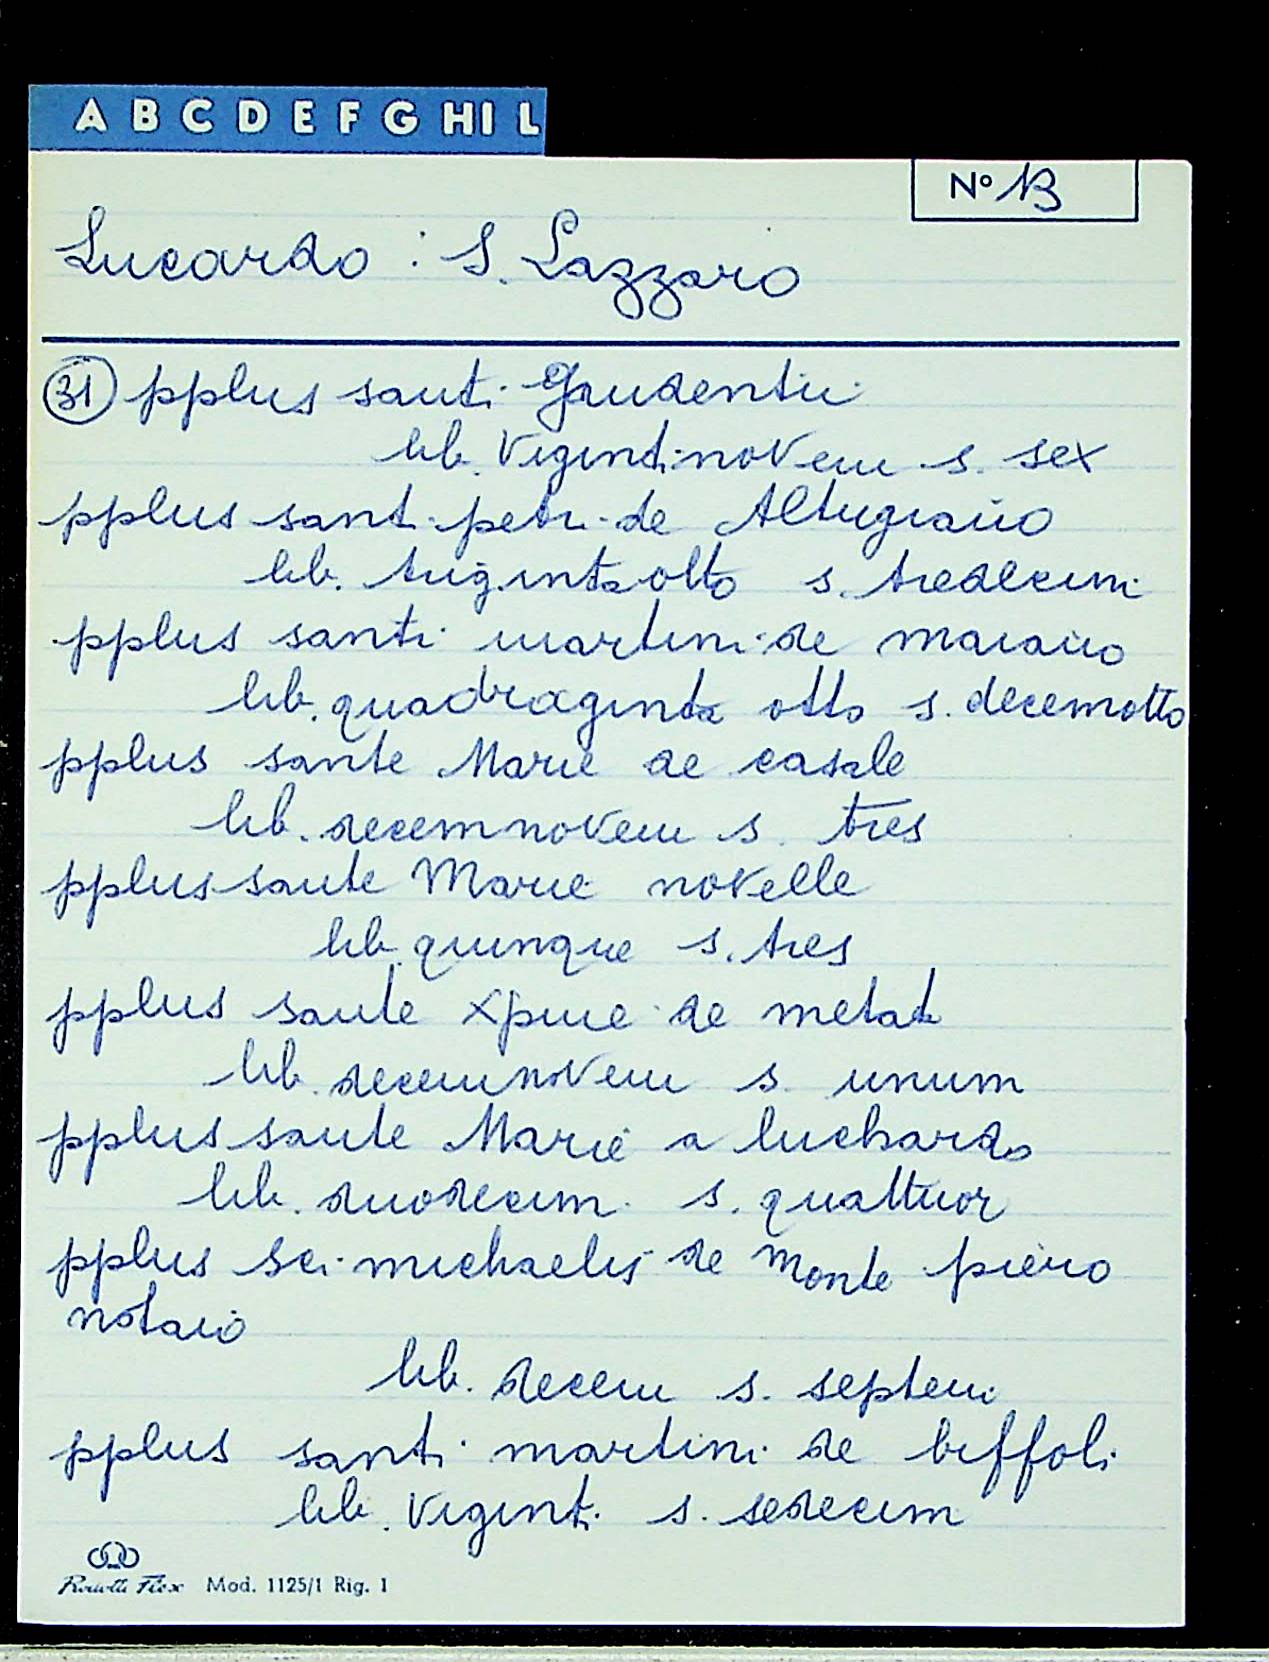 A B C D E F G HI L
Nº 13
Lucardo : S. Lazzaro
31 pplus santi Gaudentii
lib. vigintinovem s. sex
pplus santi petri de Altugiano
lib. trigintaotto s. tredecim
pplus santi martini de maiano
lib. quadraginta otto s. decemotto
pplus sante Marie de casale
lib. decemnovem s. tres
pplus sante Marie novelle
lib. quinque s. tres
pplus sante xpine de metat
lib. decemnovem s. unum
pplus sante Marie a luchardo
lib. duodecim s. quattuor
pplus sci michaelis de Monte piero
notaio
lib. decem s. septem
pplus santi martini de biffoli
lib. viginti s. sedecim
Flex Mod. 1125/1 Rig. 1